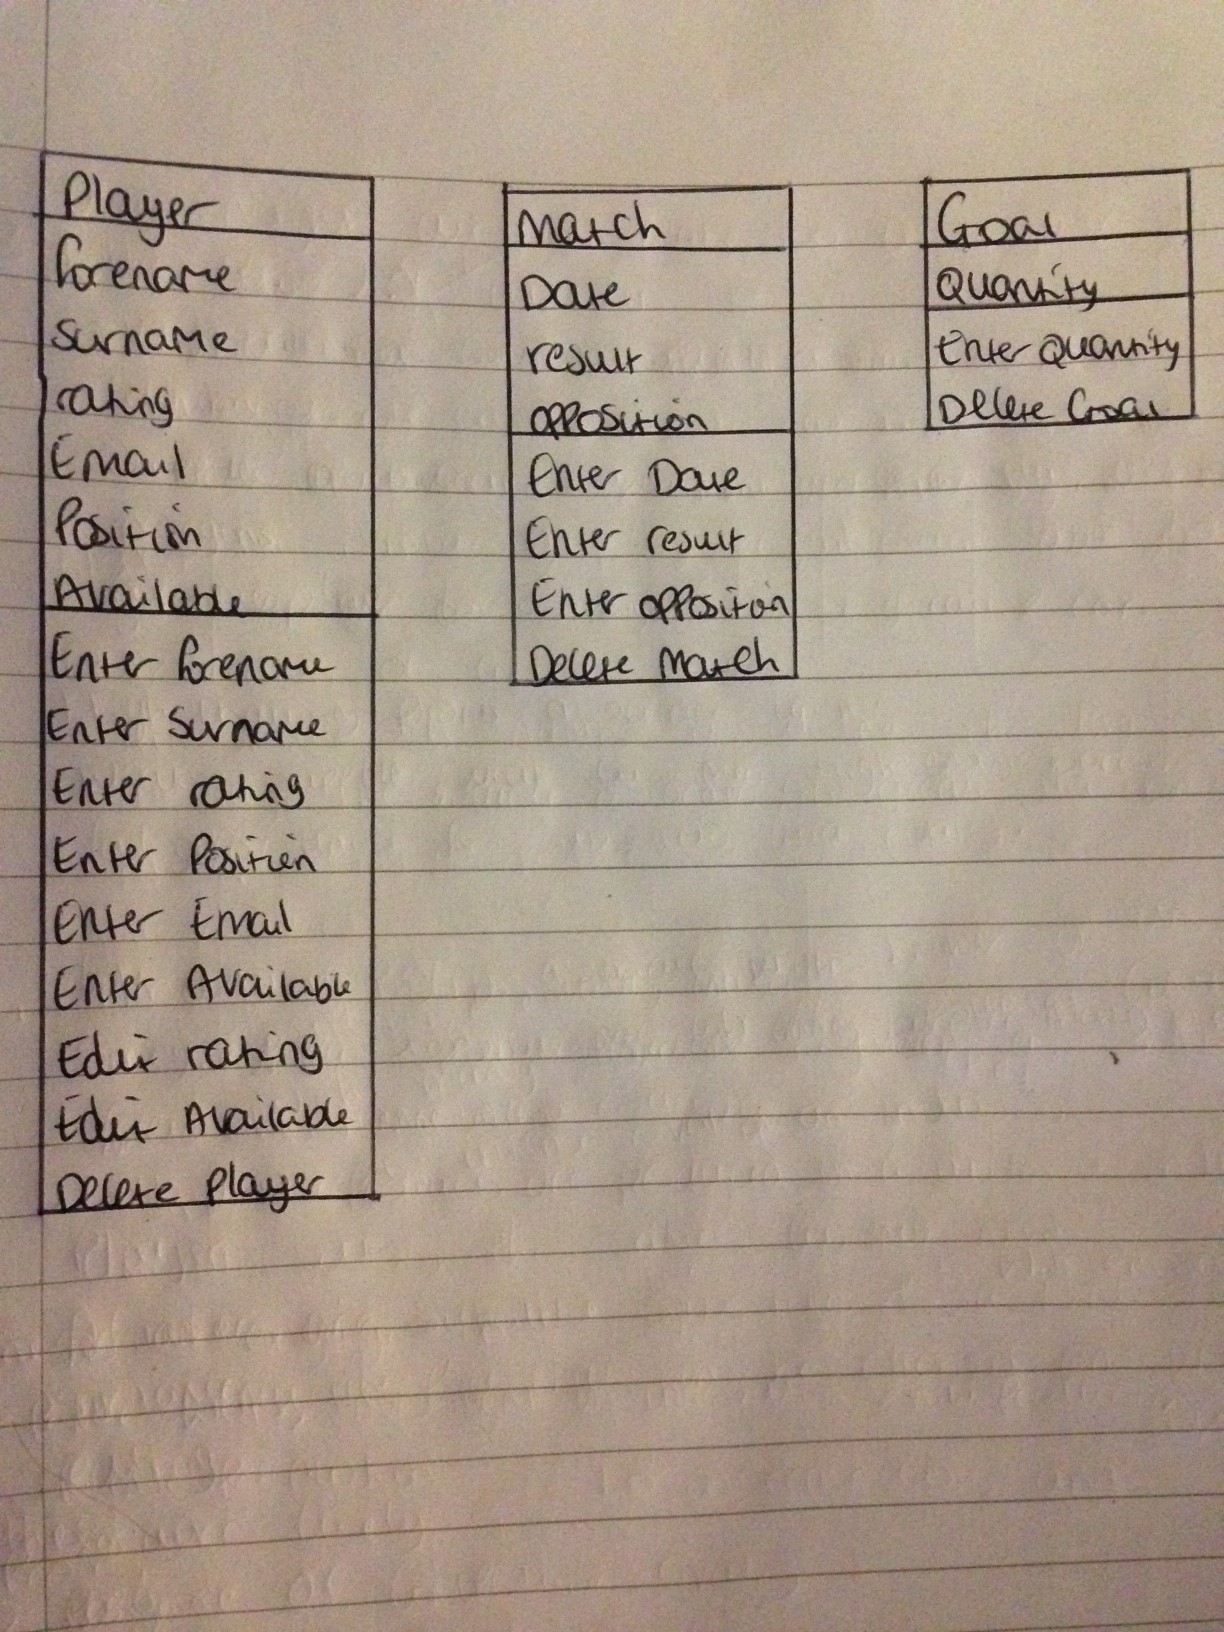 Player
forename
Surname
rating
Email
Position
Available
Enter forename
Enter Surname
Enter rating
Enter Position
Enter Email
Enter Available
Edit rating
Edit Available
Delete player
Match
Date
result
opposition
Enter Date
Enter result
Enter opposition
Delete Match
Goal
Quantity
Enter Quantity
Delete Goal